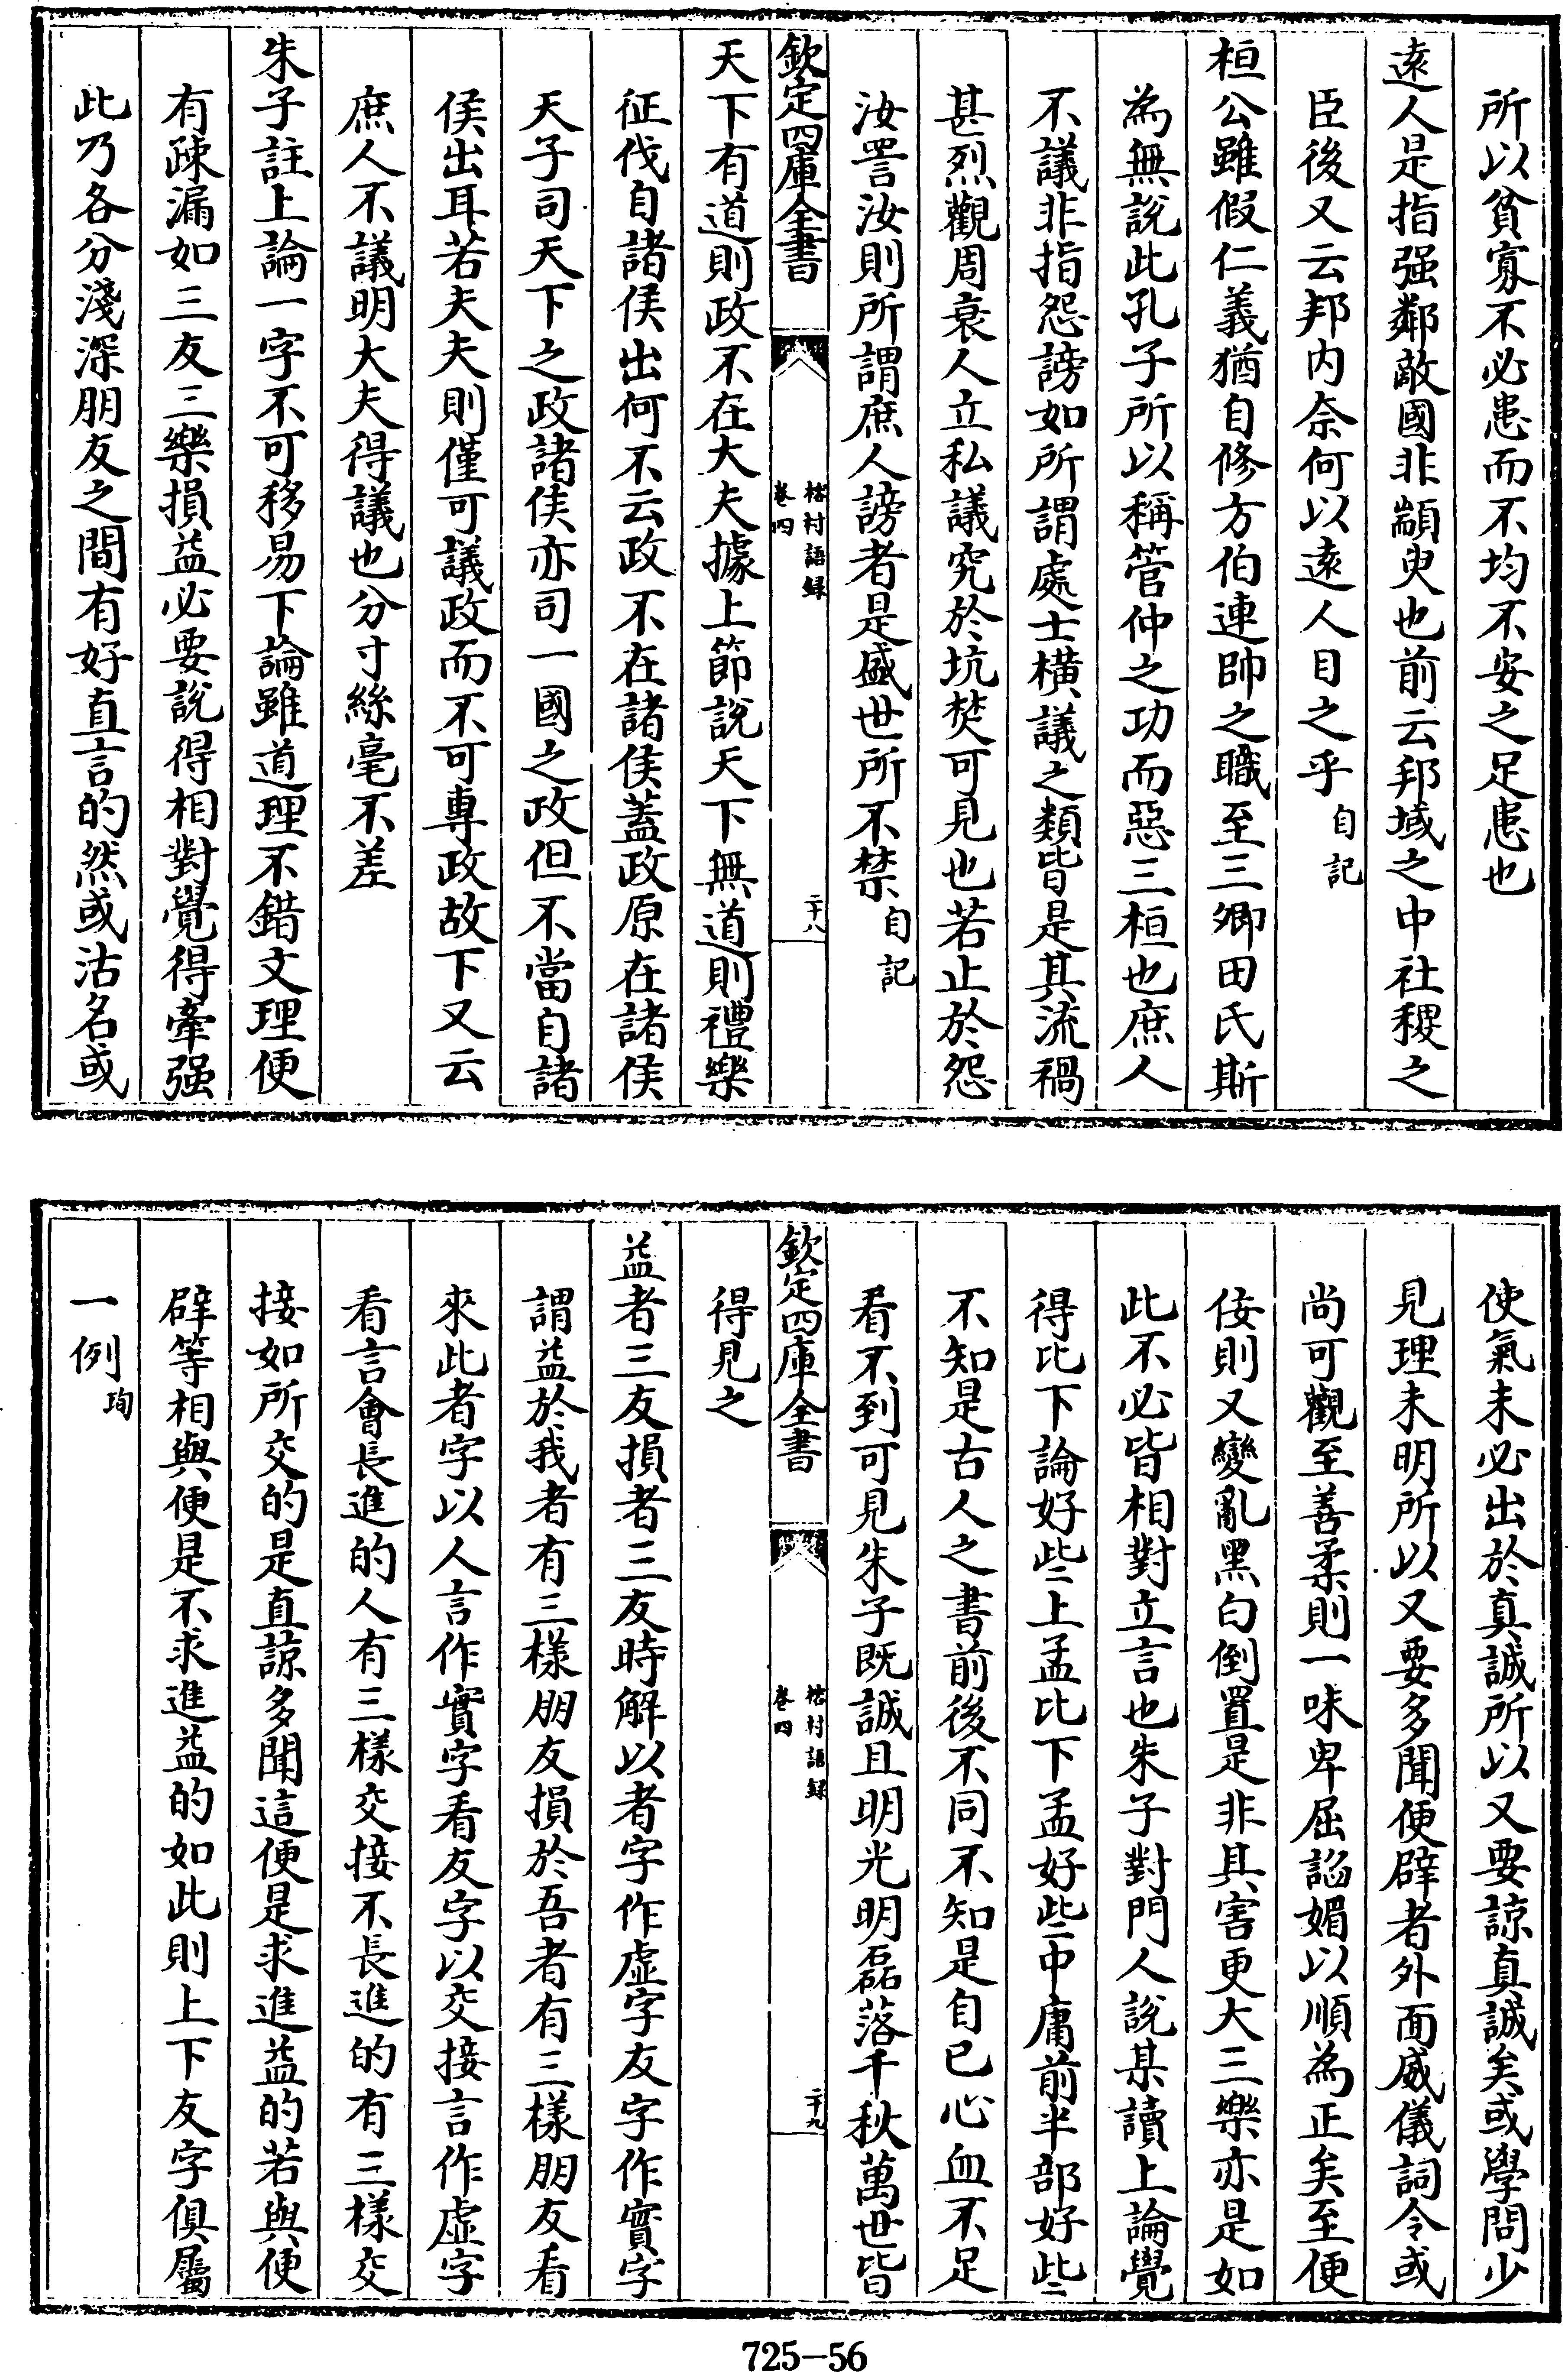 所以貧寡不必患而不均不安之足患也
遠人是指强鄰敵國非顓臾也前云邦域之中社稷之
臣後又云邦内奈何以遠人目之乎自記
桓公雖假仁義猶自修方伯連帥之職至三卿田氏斯
為無說此孔子所以稱管仲之功而惡三桓也庶人
不議非指怨謗如所謂處士橫議之類皆是其流禍
甚烈觀周衰人立私議究於坑焚可見也若止於怨
汝詈汝則所謂庶人謗者是盛世所不禁自記
欽定四庫全書
榕村語録
卷四
二十八
天下有道則政不在大夫據上節說天下無道則禮樂
征伐自諸侯出何不云政不在諸侯蓋政原在諸侯
天子司天下之政諸侯亦司一國之政但不當自諸
侯出耳若夫夫則僅可議政而不可專政故下又云
庶人不議明大夫得議也分寸絲毫不差
朱子註上論一字不可移易下論雖道理不錯文理便
有疎漏如三友三樂損益必要說得相對覺得牽强
此乃各分淺深朋友之間有好直言的然或沽名或
使氣未必出於真誠所以又要諒真誠矣或學問少
見理未明所以又要多聞便辟者外面威儀詞令或
尚可觀至善柔則一味卑屈諂媚以順為正矣至便
佞則又變亂黑白倒置是非其害更大三樂亦是如
此不必皆相對立言也朱子對門人說某讀上論覺
得比下論好些上孟比下孟好些中庸前半部好些
不知是古人之書前後不同不知是自已心血不足
看不到可見朱子既誠且明光明磊落千秋萬世皆
欽定四庫全書
榕村語録
卷四
二十九
得見之
益者三友損者三友時解以者字作虚字友字作實字
謂益於我者有三樣朋友損於吾者有三樣朋友看
來此者字以人言作實字看友字以交接言作虚字
看言會長進的人有三樣交接不長進的有三樣交
接如所交的是直諒多聞這便是求進益的若與便
辟等相與便是不求進益的如此則上下友字俱屬
一例珣
725-56